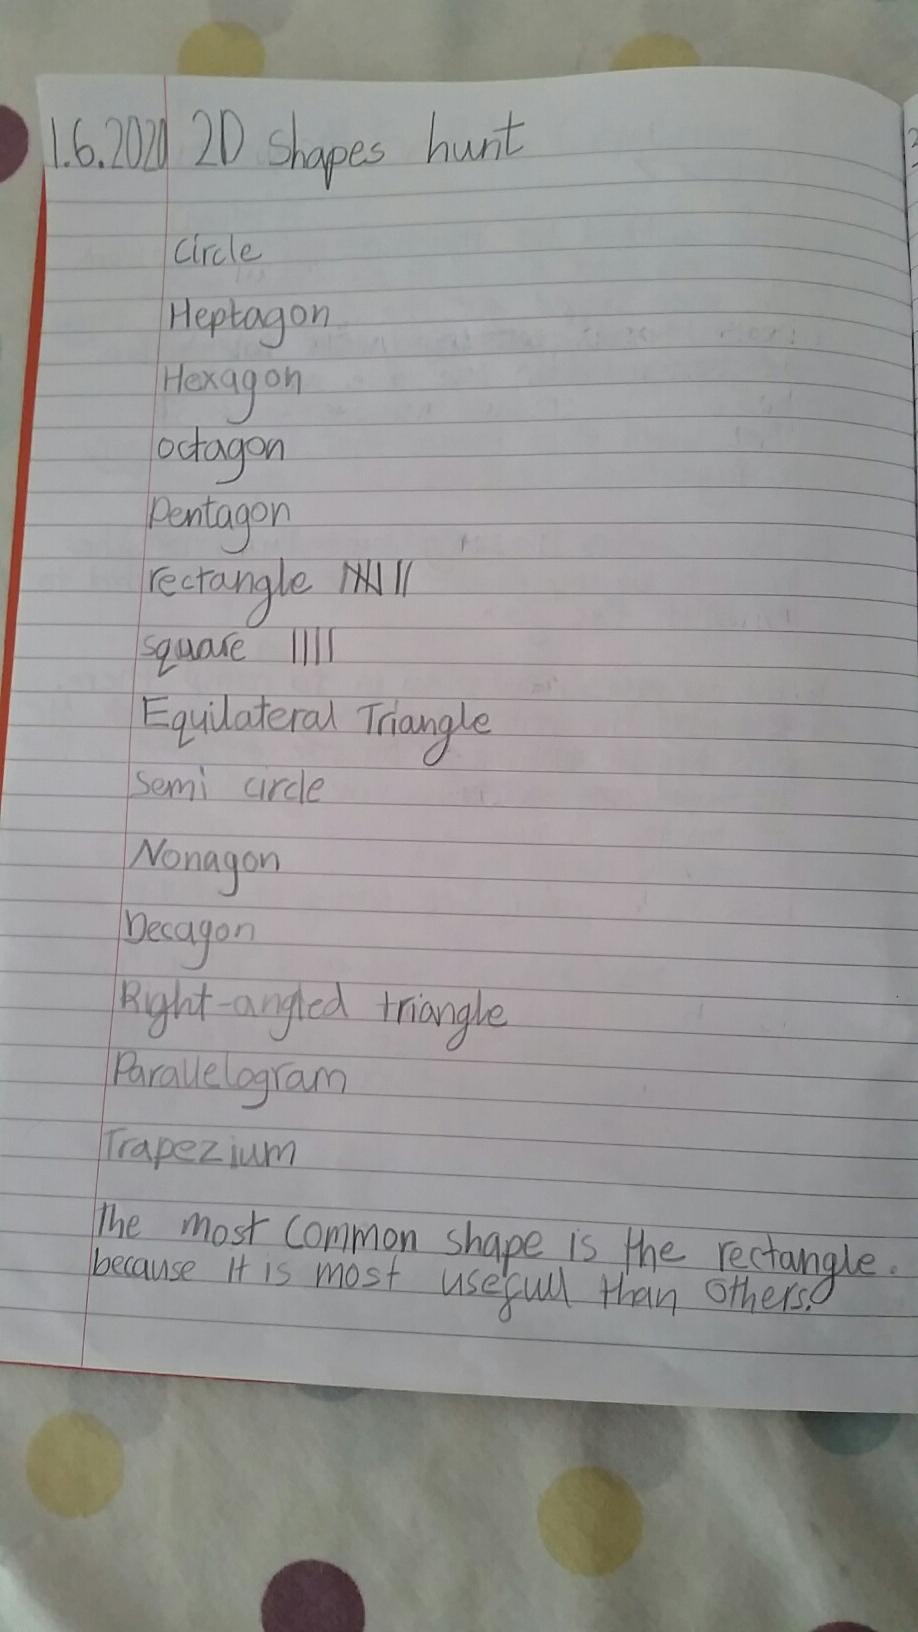 1.6.2020 2D shapes hunt
Circle
Heptagon
Hexagon
octagon
Pentagon
rectangle 卌 ||
square ||||
Equilateral Triangle
Semi circle
Nonagon
Decagon
Right-angled triangle
Parallelogram
Trapezium
The most common shape is the rectangle.
because it is most usefull than others.